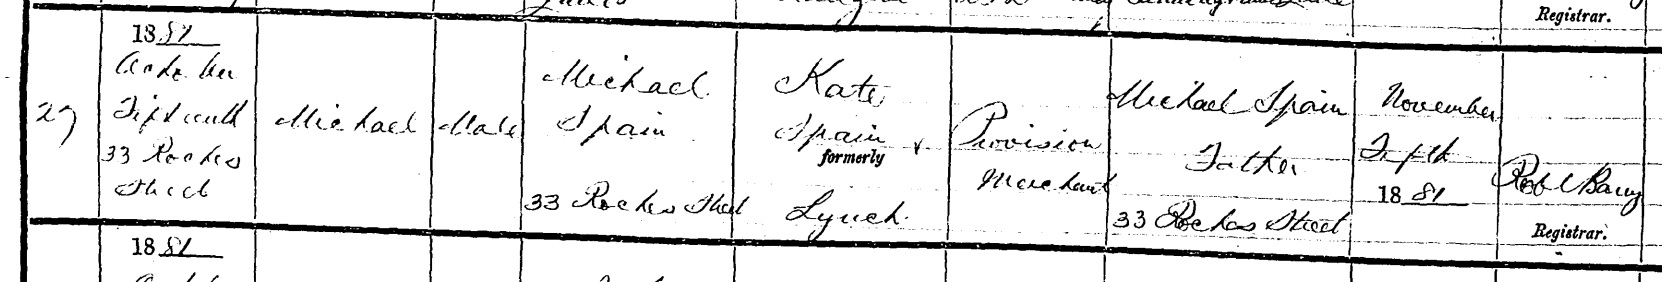 Registrar.
27
1881
October
Fifteenth
33 Roches
Street
Michael
Male
Michael
Spain
33 Roches Street
Kate
Spain
formerly
Lynch
Provision
Merchant
Michael Spain
Father
33 Roches Street
November
Fifth
1881
Robt Barry
Registrar.
1881